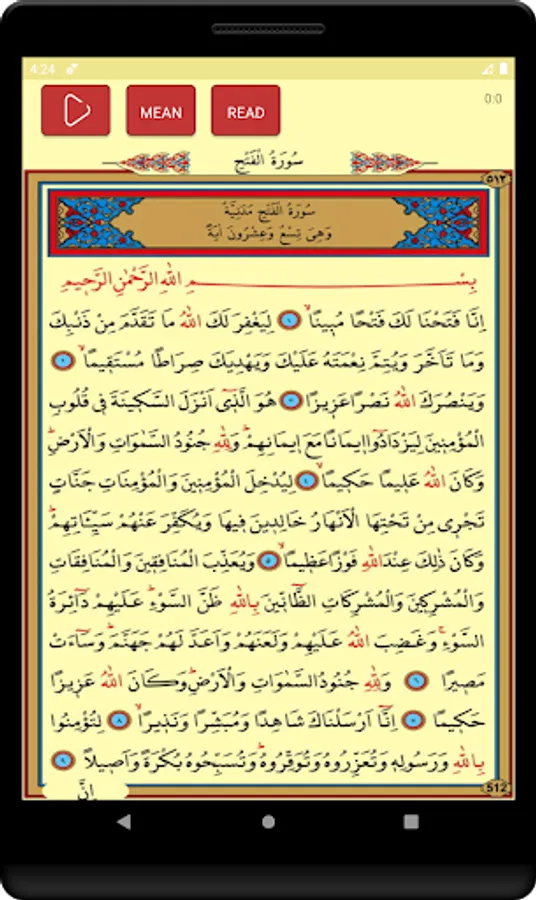 4:24
0:0
MEAN READ
سُورَةُ الْفَتْحِ
٥١٢
سُورَةُ الْفَتْحِ مَدَنِيَّةٌ
وَهِىَ تِسْعٌ وَعِشْرُونَ اٰيَةً
بِسْــــــمِ اللّٰهِ الرَّحْمٰنِ الرَّحٖيمِ
اِنَّا فَتَحْنَا لَكَ فَتْحًا مُبٖينًاۙ ١ لِيَغْفِرَ لَكَ اللّٰهُ مَا تَقَدَّمَ مِنْ ذَنْبِكَ
وَمَا تَاَخَّرَ وَيُتِمَّ نِعْمَتَهُ عَلَيْكَ وَيَهْدِيَكَ صِرَاطًا مُسْتَقٖيمًاۙ ٢
وَيَنْصُرَكَ اللّٰهُ نَصْرًا عَزٖيزًا ٣ هُوَ الَّذٖٓى اَنْزَلَ السَّكٖينَةَ فٖى قُلُوبِ
الْمُؤْمِنٖينَ لِيَزْدَادُٓوا اٖيمَانًا مَعَ اٖيمَانِهِمْؕ وَلِلّٰهِ جُنُودُ السَّمٰوَاتِ وَالْاَرْضِؕ
وَكَانَ اللّٰهُ عَلٖيمًا حَكٖيمًاۙ ٤ لِيُدْخِلَ الْمُؤْمِنٖينَ وَالْمُؤْمِنَاتِ جَنَّاتٍ
تَجْرٖى مِنْ تَحْتِهَا الْاَنْهَارُ خَالِدٖينَ فٖيهَا وَيُكَفِّرَ عَنْهُمْ سَيِّـَٔاتِهِمْؕ
وَكَانَ ذٰلِكَ عِنْدَ اللّٰهِ فَوْزًا عَظٖيمًاۙ ٥ وَيُعَذِّبَ الْمُنَافِقٖينَ وَالْمُنَافِقَاتِ
وَالْمُشْرِكٖينَ وَالْمُشْرِكَاتِ الظَّٓانّٖينَ بِاللّٰهِ ظَنَّ السَّوْءِؕ عَلَيْهِمْ دَٓائِرَةُ
السَّوْءِۚ وَغَضِبَ اللّٰهُ عَلَيْهِمْ وَلَعَنَهُمْ وَاَعَدَّ لَهُمْ جَهَنَّمَؕ وَسَٓاءَتْ
مَصٖيرًا ٦ وَلِلّٰهِ جُنُودُ السَّمٰوَاتِ وَالْاَرْضِؕ وَكَانَ اللّٰهُ عَزٖيزًا
حَكٖيمًا ٧ اِنَّٓا اَرْسَلْنَاكَ شَاهِدًا وَمُبَشِّرًا وَنَذٖيرًاۙ ٨ لِتُؤْمِنُوا
بِاللّٰهِ وَرَسُولِهٖ وَتُعَزِّرُوهُ وَتُوَقِّرُوهُؕ وَتُسَبِّحُوهُ بُكْرَةً وَاَصٖيلًا ٩
اِنَّ
512